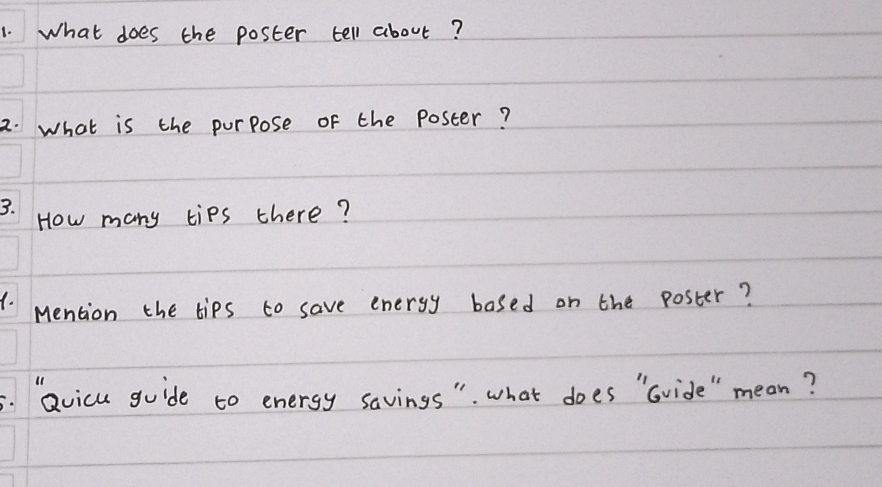 1. What does the poster tell about ?
2. What is the purpose of the poster ?
3. How many tips there ?
4. Mention the tips to save energy based on the poster ?
5. "Quick guide to energy savings". What does "Guide" mean ?